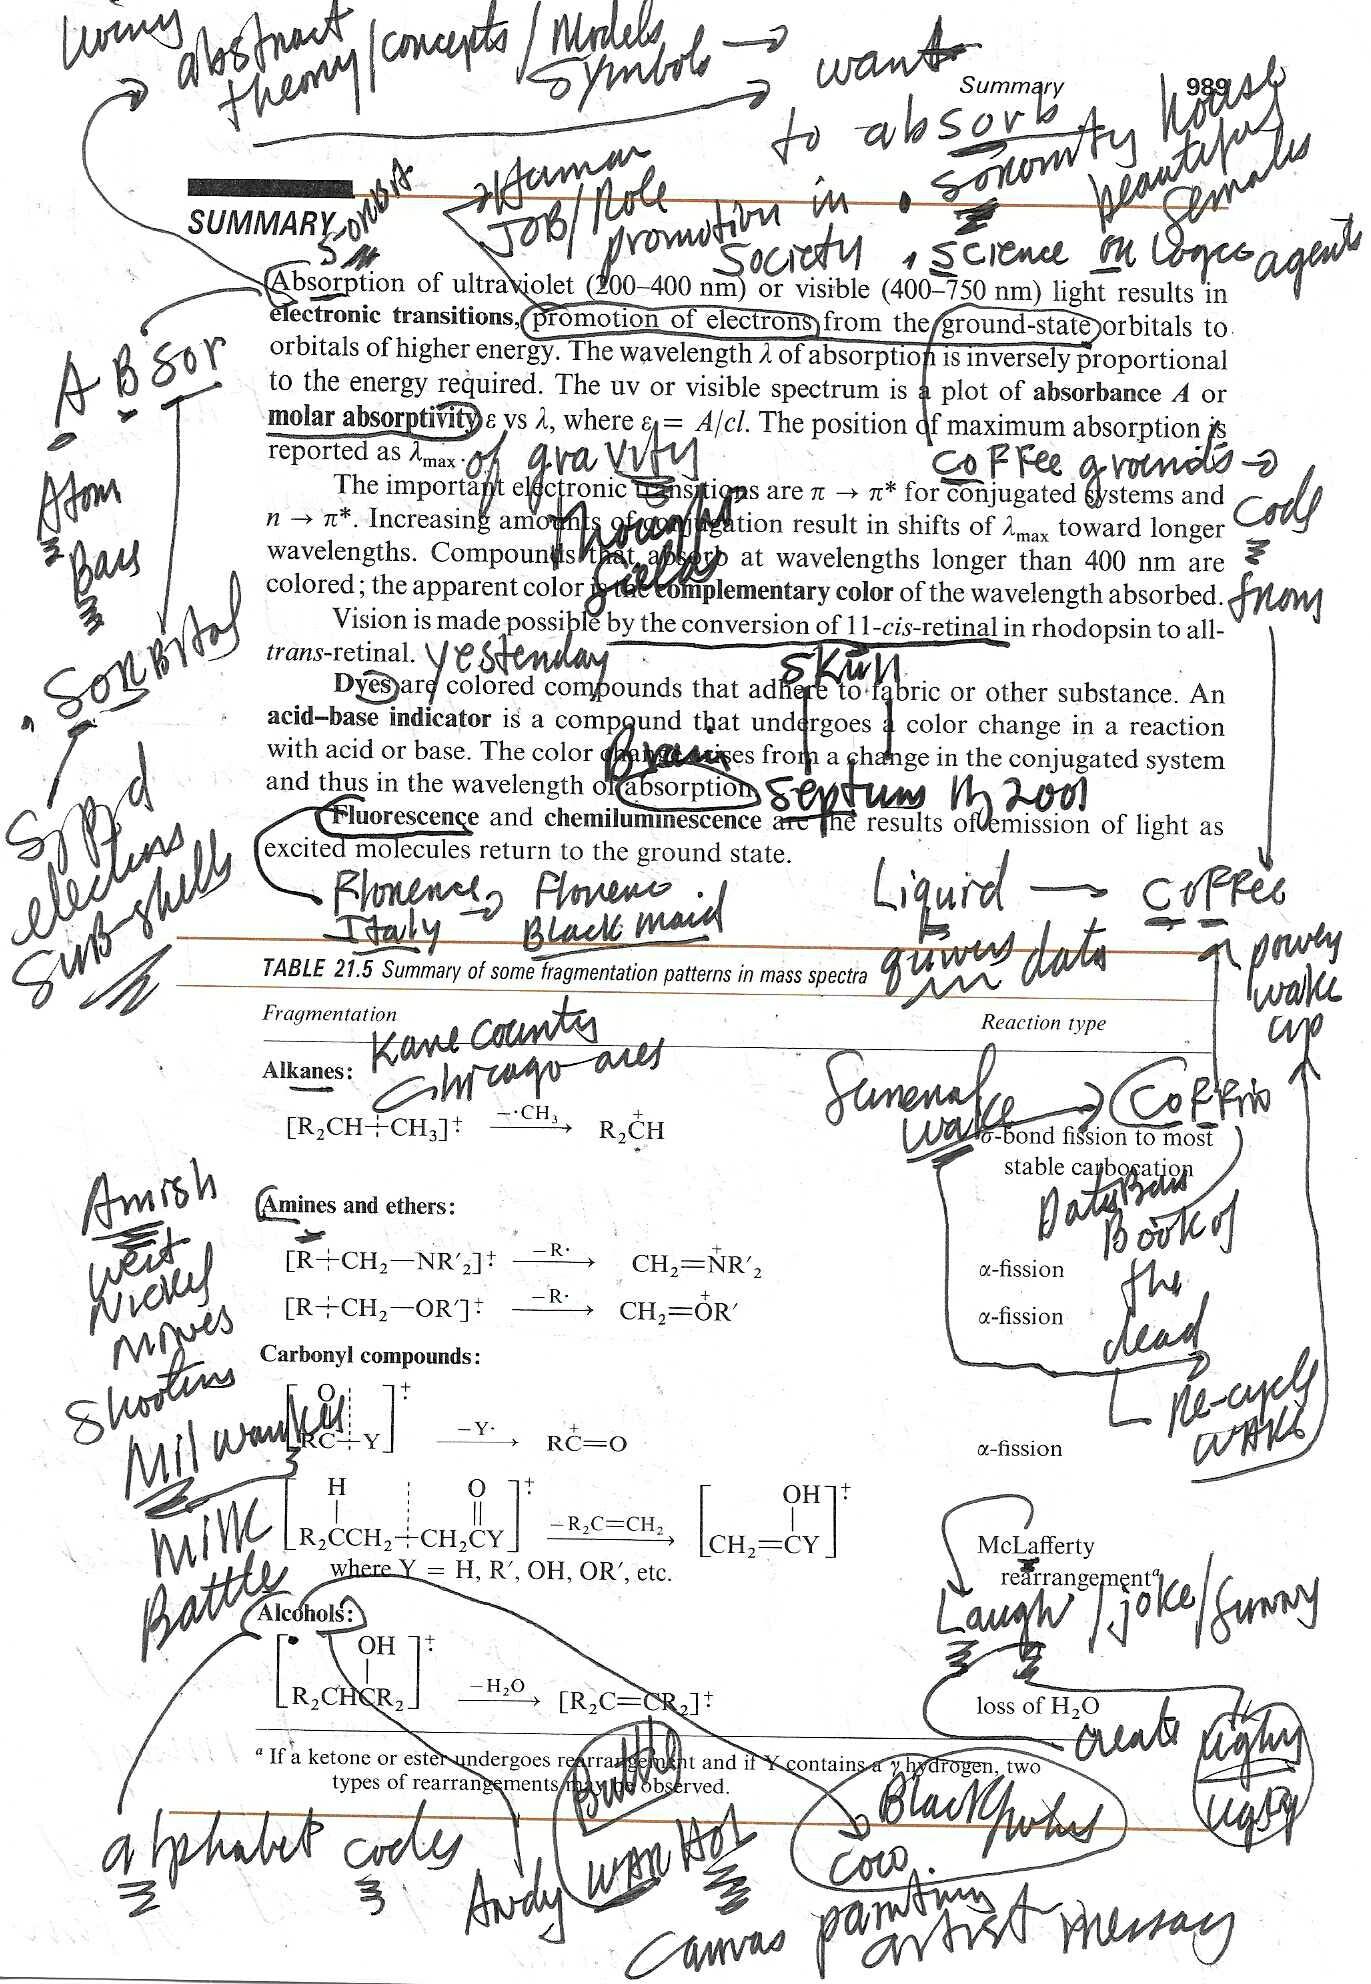 living
abstract
theory/concepts/Models
Symbols → want
Summary 989
to absorb
sorority house
beautiful
females
S-ORBIT
Human
JOB/Role
promotion in
Society
science or logic agents
SUMMARY
Absorption of ultraviolet (200–400 nm) or visible (400–750 nm) light results in
electronic transitions, promotion of electrons from the ground-state orbitals to
orbitals of higher energy. The wavelength λ of absorption is inversely proportional
to the energy required. The uv or visible spectrum is a plot of absorbance A or
molar absorptivity ε vs λ, where ε = A/cl. The position of maximum absorption is
reported as λmax.
of gravity
thoughts
fields
coffee grounds →
code
from
The important electronic transitions are π → π* for conjugated systems and
n → π*. Increasing amounts of conjugation result in shifts of λmax toward longer
wavelengths. Compounds that absorb at wavelengths longer than 400 nm are
colored; the apparent color is the complementary color of the wavelength absorbed.
Vision is made possible by the conversion of 11-cis-retinal in rhodopsin to all-
trans-retinal.
yesterday
skin
Dyes are colored compounds that adhere to fabric or other substance. An
acid–base indicator is a compound that undergoes a color change in a reaction
with acid or base. The color change arises from a change in the conjugated system
and thus in the wavelength of absorption.
Brain
septum
2001
Fluorescence and chemiluminescence are the results of emission of light as
excited molecules return to the ground state.
A B Sor
Atom
S, P, d
elections
SUB-shells
Florence → Florence
Italy Black maid
Liquid → COFFEE
data
power
wake
up
TABLE 21.5 Summary of some fragmentation patterns in mass spectra
Fragmentation Reaction type
Kane County
Chicago area
Alkanes:
[R₂CH┼CH₃]⁺· —·CH₃→ R₂C⁺H σ-bond fission to most
stable carbocation
funeral
wake → Coffin
Book of
the
dead
Re-cycle
wake
Amines and ethers:
[R┼CH₂—NR′₂]⁺· —R·→ CH₂=N⁺R′₂ α-fission
[R┼CH₂—OR′]⁺· —R·→ CH₂=O⁺R′ α-fission
Amish
West
Nickel
Mines
Shooting
Milwaukee
Milk
Battle
Carbonyl compounds:
[RC(O)┼Y]⁺· —Y·→ RC⁺=O α-fission
[R₂C(H)CH₂┼CH₂C(=O)Y]⁺· —R₂C=CH₂→ [CH₂=C(OH)Y]⁺· McLafferty
rearrangementᵃ
where Y = H, R′, OH, OR′, etc.
Laugh/joke/funny
Alcohols:
[R₂CHC(OH)R₂]⁺· —H₂O→ [R₂C=CR₂]⁺· loss of H₂O
create ughy
ugly
ᵃ If a ketone or ester undergoes rearrangement and if Y contains a γ hydrogen, two
types of rearrangements may be observed.
Battle
Black holes
coco
alphabet codes
Andy WAR HOL
canvas painting
artist message